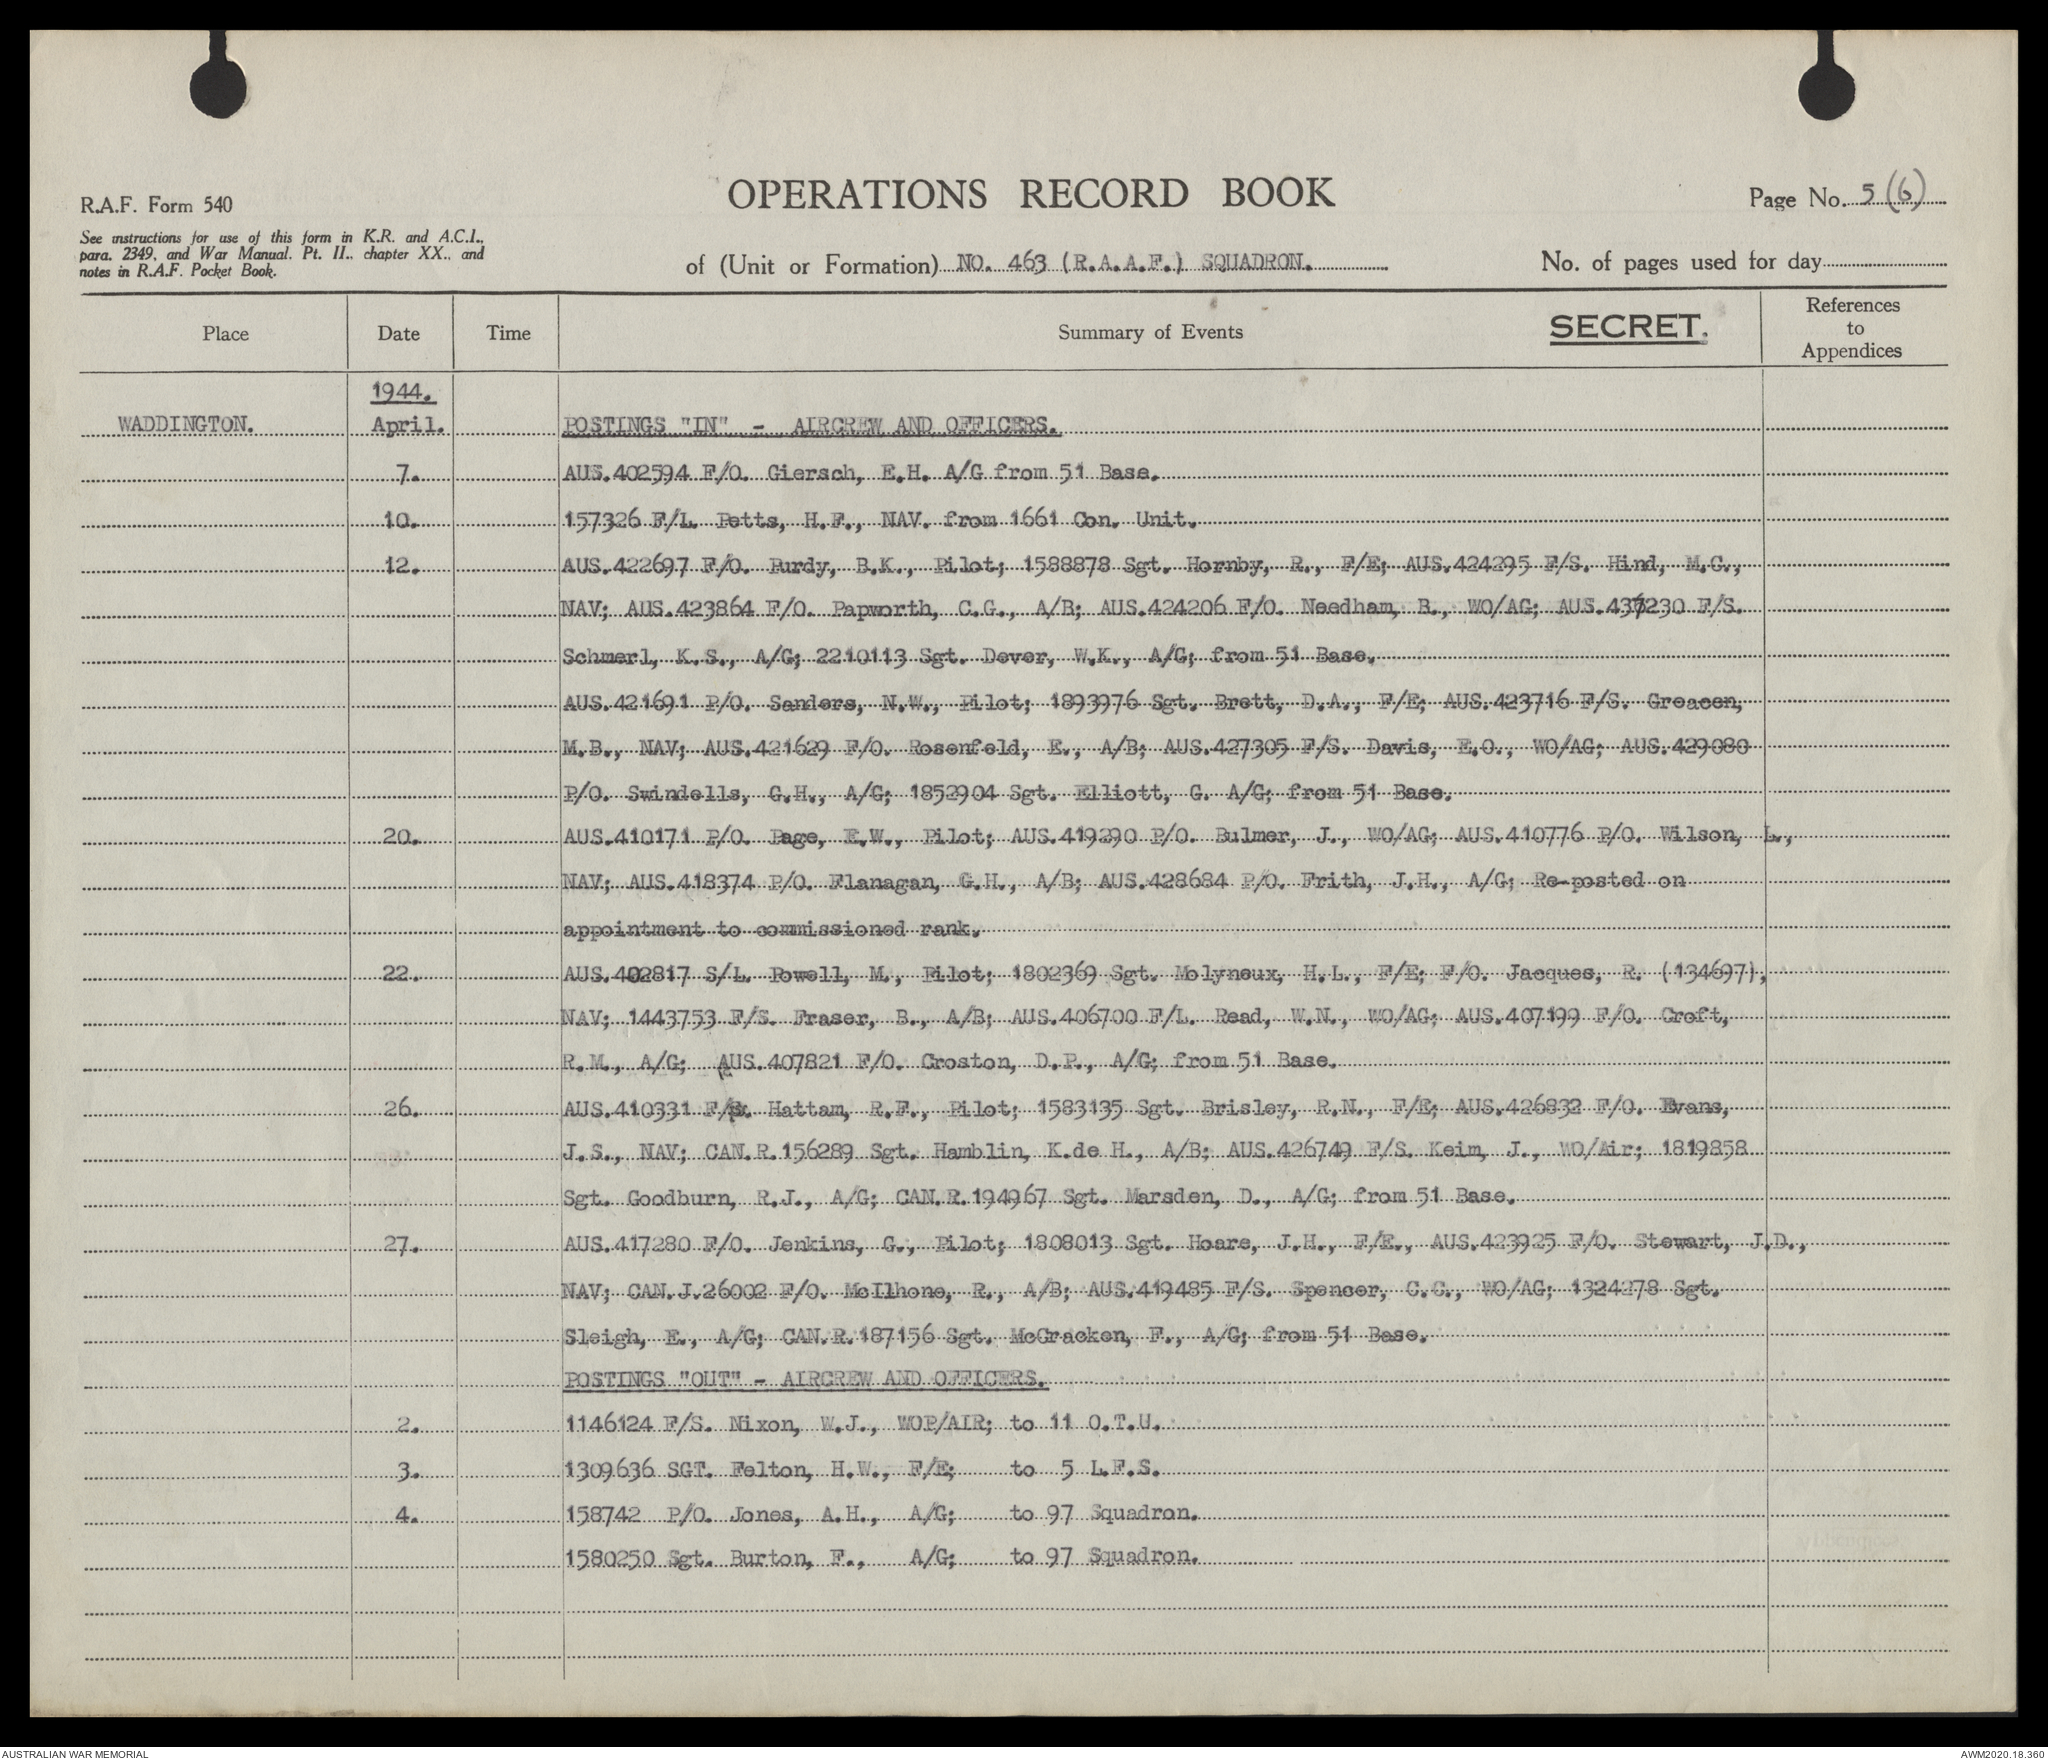 R.A.F. Form 540
See instructions for use of this form in K.R. and A.C.I.,
para. 2349, and War Manual. Pt. II., chapter XX., and
notes in R.A.F. Pocket Book.
OPERATIONS RECORD BOOK
Page No. 5 (6)
of (Unit or Formation) NO. 463 (R.A.A.F.) SQUADRON.
No. of pages used for day
Place Date Time Summary of Events SECRET. References to Appendices
1944.
WADDINGTON. April. POSTINGS "IN" - AIRCREW AND OFFICERS.
7. AUS.402594 F/O. Giersch, E.H. A/G from 51 Base.
10. 157326 F/L. Petts, H.F., NAV. from 1661 Con. Unit.
12. AUS.422697 F/O. Purdy, B.K., Pilot; 1588878 Sgt. Hornby, R., F/E; AUS.424295 F/S. Hind, M.C.,
NAV; AUS.423864 F/O. Papworth, C.G., A/B; AUS.424206 F/O. Needham, R., WO/AG; AUS.437230 F/S.
Schmerl, K.S., A/G; 2210113 Sgt. Dever, W.K., A/G; from 51 Base.
AUS.421691 P/O. Sanders, N.W., Pilot; 1893976 Sgt. Brett, D.A., F/E; AUS.423716 F/S. Greacen,
M.B., NAV; AUS.421629 F/O. Rosenfeld, E., A/B; AUS.427305 F/S. Davis, E.O., WO/AG; AUS.429080
P/O. Swindells, G.H., A/G; 1852904 Sgt. Elliott, G. A/G; from 51 Base.
20. AUS.410171 P/O. Page, E.W., Pilot; AUS.419290 P/O. Bulmer, J., WO/AG; AUS.410776 P/O. Wilson, L.,
NAV; AUS.418374 P/O. Flanagan, G.H., A/B; AUS.428684 P/O. Frith, J.H., A/G; Re-posted on
appointment to commissioned rank.
22. AUS.402817 S/L. Powell, M., Pilot; 1802369 Sgt. Molyneux, H.L., F/E; F/O. Jacques, R. (134697),
NAV; 1443753 F/S. Fraser, B., A/B; AUS.406700 F/L. Read, W.N., WO/AG; AUS.407199 F/O. Croft,
R.M., A/G; AUS.407821 F/O. Croston, D.P., A/G; from 51 Base.
26. AUS.410331 F/S. Hattam, R.F., Pilot; 1583135 Sgt. Brisley, R.N., F/E; AUS.426832 F/O. Evans,
J.S., NAV; CAN.R.156289 Sgt. Hamblin, K.de H., A/B; AUS.426749 F/S. Keim, J., WO/Air; 1819858
Sgt. Goodburn, R.J., A/G; CAN.R.194967 Sgt. Marsden, D., A/G; from 51 Base.
27. AUS.417280 F/O. Jenkins, G., Pilot; 1808013 Sgt. Hoare, J.H., F/E., AUS.423925 F/O. Stewart, J.D.,
NAV; CAN.J.26002 F/O. McIlhone, R., A/B; AUS.419485 F/S. Spencer, C.C., WO/AG; 1324278 Sgt.
Sleigh, E., A/G; CAN.R.187156 Sgt. McCracken, F., A/G; from 51 Base.
POSTINGS "OUT" - AIRCREW AND OFFICERS.
2. 1146124 F/S. Nixon, W.J., WOP/AIR; to 11 O.T.U.
3. 1309636 SGT. Felton, H.W., F/E; to 5 L.F.S.
4. 158742 P/O. Jones, A.H., A/G; to 97 Squadron.
1580250 Sgt. Burton, F., A/G; to 97 Squadron.
AUSTRALIAN WAR MEMORIAL
AWM2020.18.360